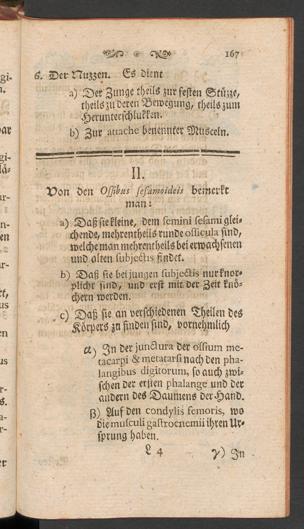 167
6. Der Nuzzen. Es dient
a) Der Zunge theils zur festen Stüzze,
theils zu deren Bewegung, theils zum
Herunterschlukken.
b) Zur attache benennter Musceln.
II.
Von den Ossibus sesamoideis bemerkt
man:
a) Daß sie kleine, dem semini sesami glei-
chende, mehrentheils runde ossicula sind,
welche man mehrentheils bei erwachsenen
und alten subjectis findet.
b) Daß sie bei jungen subjectis nur knor-
plicht sind, und erst mit der Zeit knö-
chern werden.
c) Daß sie an verschiedenen Theilen des
Körpers zu finden sind, vornehmlich
α) In der junctura der ossium me-
tacarpi & metatarsi nach den pha-
langibus digitorum, so auch zwi-
schen der ersten phalange und der
andern des Daumens der Hand.
β) Auf den condylis femoris, wo
die musculi gastrocnemii ihren Ur-
sprung haben.
L 4
γ) In